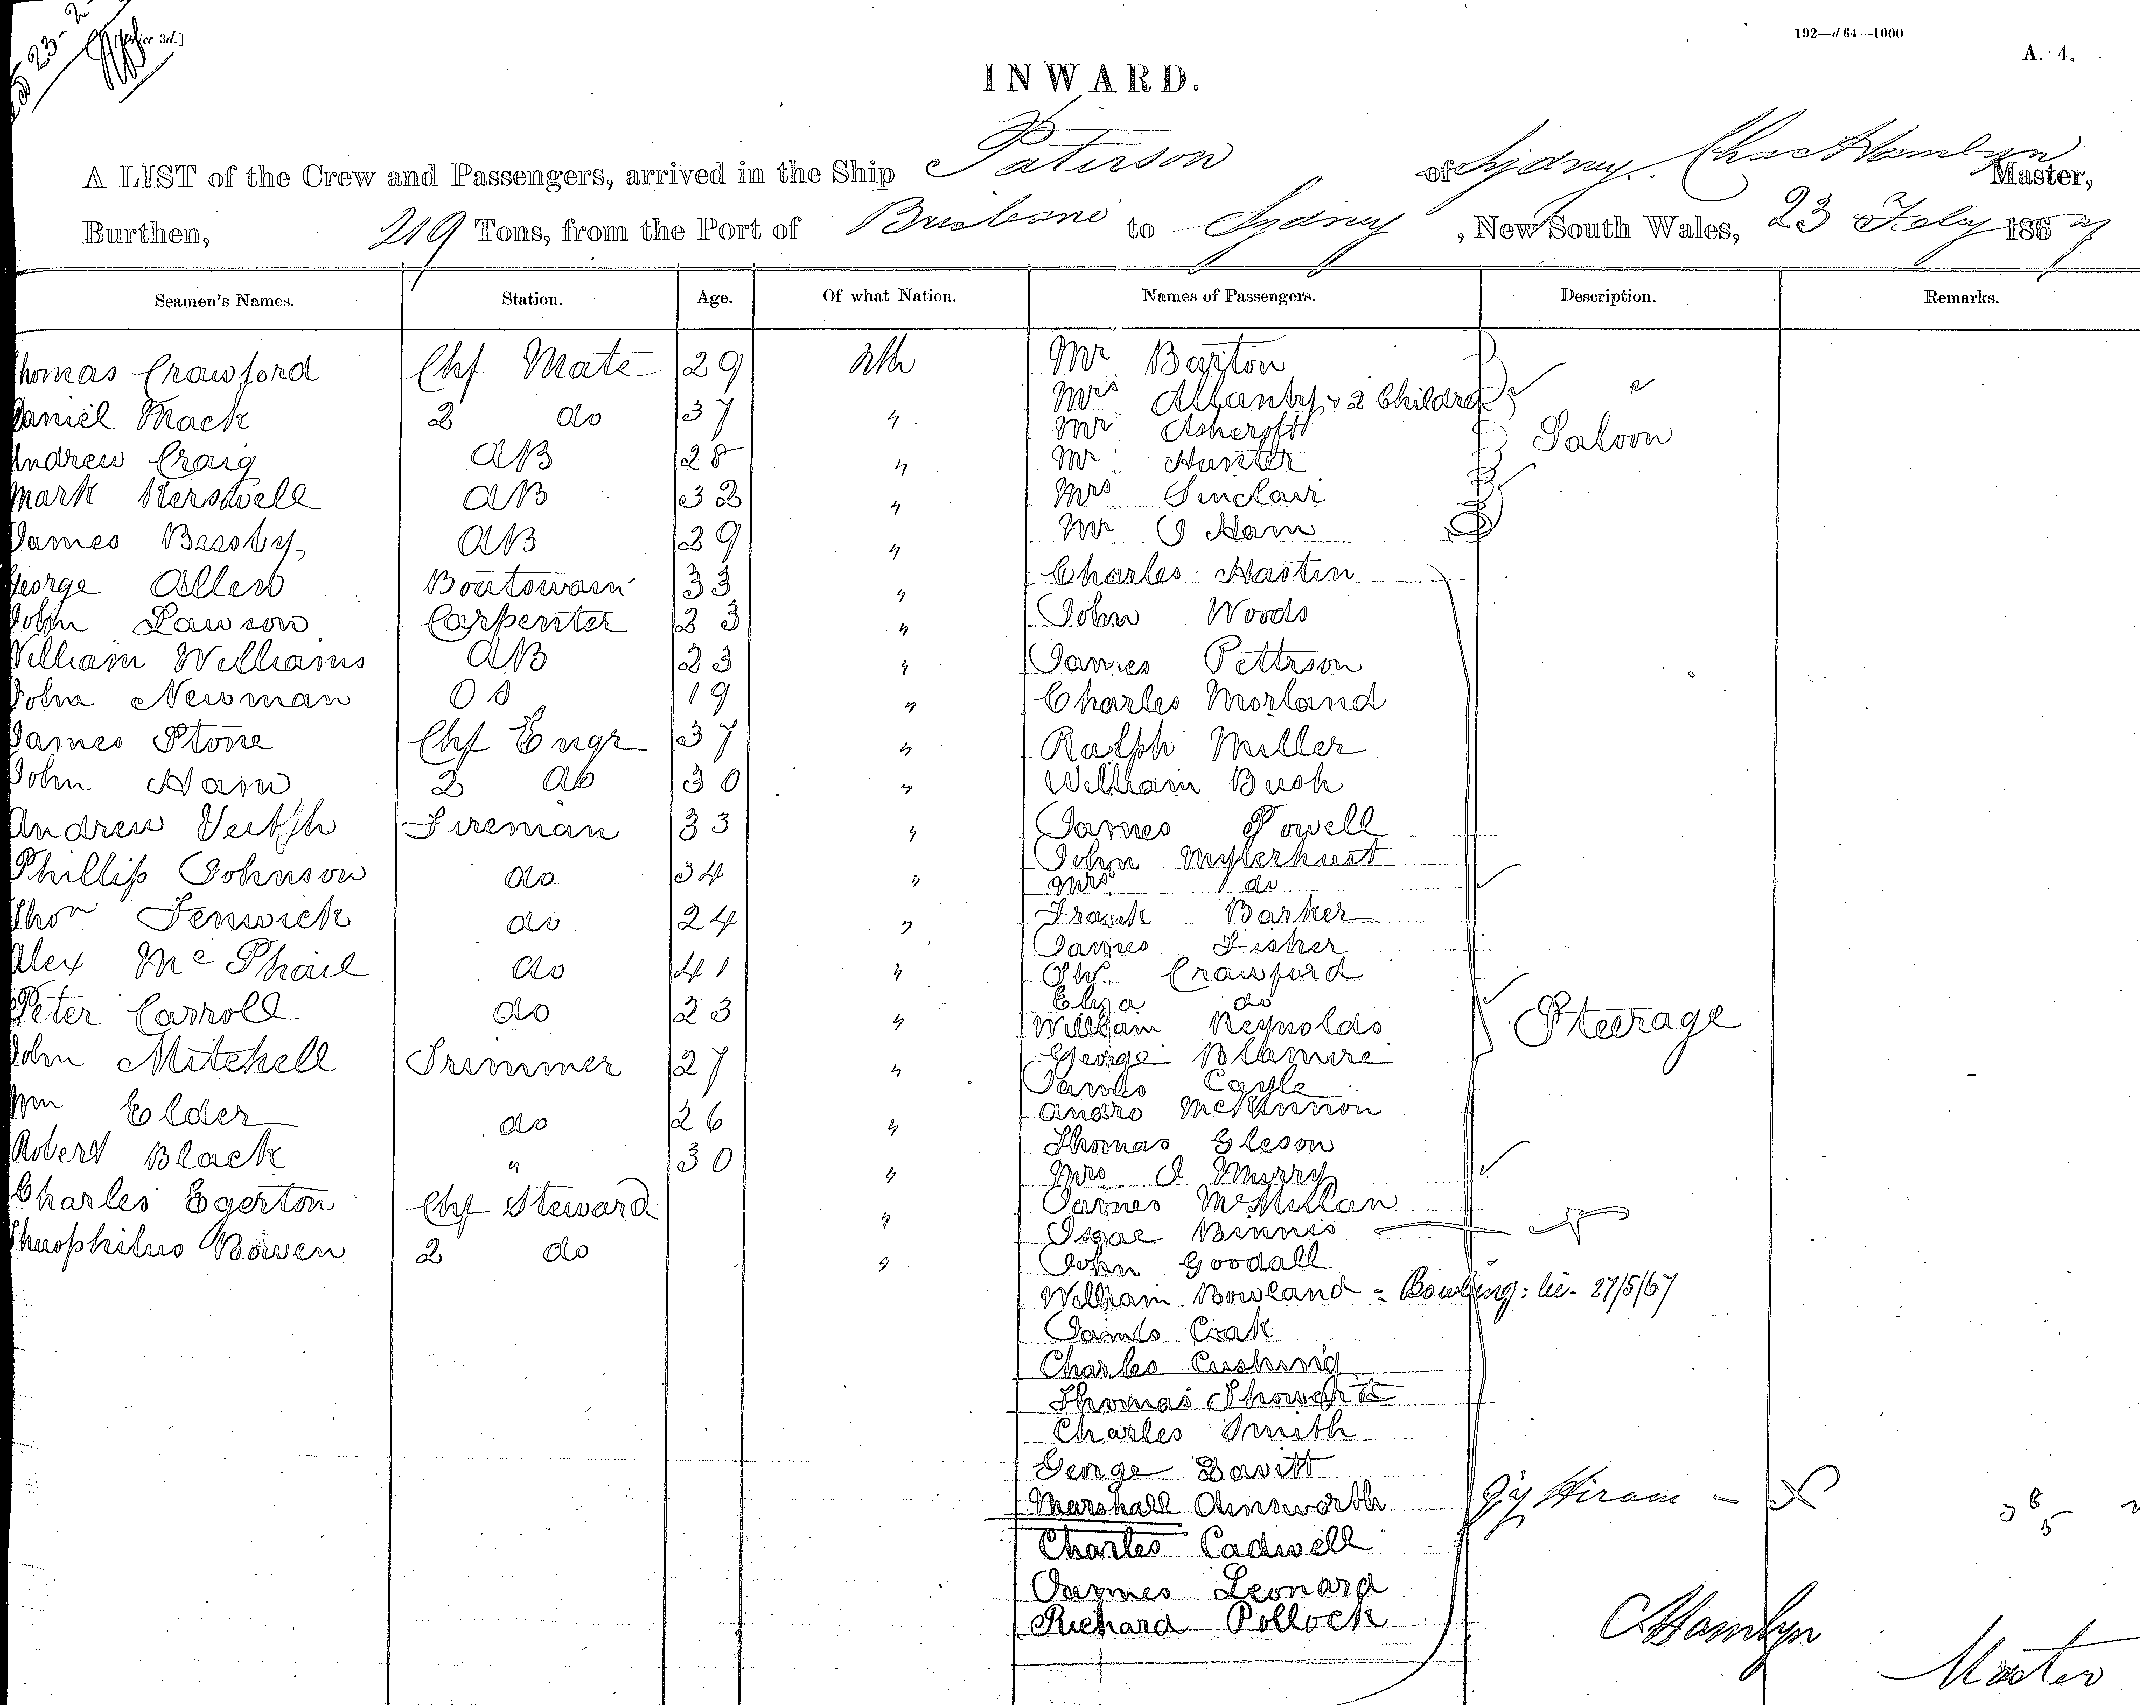 192—d 64—1000
A. 4.
INWARD.
A LIST of the Crew and Passengers, arrived in the Ship Paterson of Sydney Chas Hamlyn Master,
Burthen, 219 Tons, from the Port of Brisbane to Sydney, New South Wales, 23 Feby 1867
Seamen's Names. Station. Age. Of what Nation. Names of Passengers. Description. Remarks.
homas Crawford Chf Mate 29
Mr Barton
aniel Mack 2 do 37 "
Mrs & 2 Childre
Mr Ashcroft
Saloon
Andrew Craig AB 28 "
Mr Hunter
Mark Kerswell AB 32 "
Mrs Sinclair
James AB 29 "
Mr O Ham
George Allen Boatswain 33 "
Charles Hastin
John Lawson Carpenter 23 "
John Woods
William Williams AB 23 "
James Petterson
John Newman OS 19 "
Charles Morland
James Stone Chf Engr 37 "
Ralph Miller
John Ham 2 do 30 "
William Bush
Andrew Veitch Fireman 33 "
James Powell
John Mylerhurst
Phillip Johnson do 34 "
Mrs do
Thos Fenwick do 24 "
Frank Barker
James Fisher
Alex McPhail do 41 "
Crawford
Eliza do
Peter Carroll do 23 "
William Reynolds
Steerage
George Blamire
John Mitchell Trimmer 27 "
James Cayle
Wm Elder do 26 "
Andro McKinnon
Thomas Gleson
Robert Black " 30 "
Mrs Murry
Charles Egerton Chf Steward "
James McMillan
Isaac Binnis
Theophilus Bowen 2 do "
John Goodall
William Bowland = Bowling: lic. 27/5/67
James Cook
Charles Cushing
Thomas
Charles Smith
George Davitt
Marshall Ainsworth Hiram
Charles Cadwell
James Leonard
Richard Pollock
CHamlyn
Master